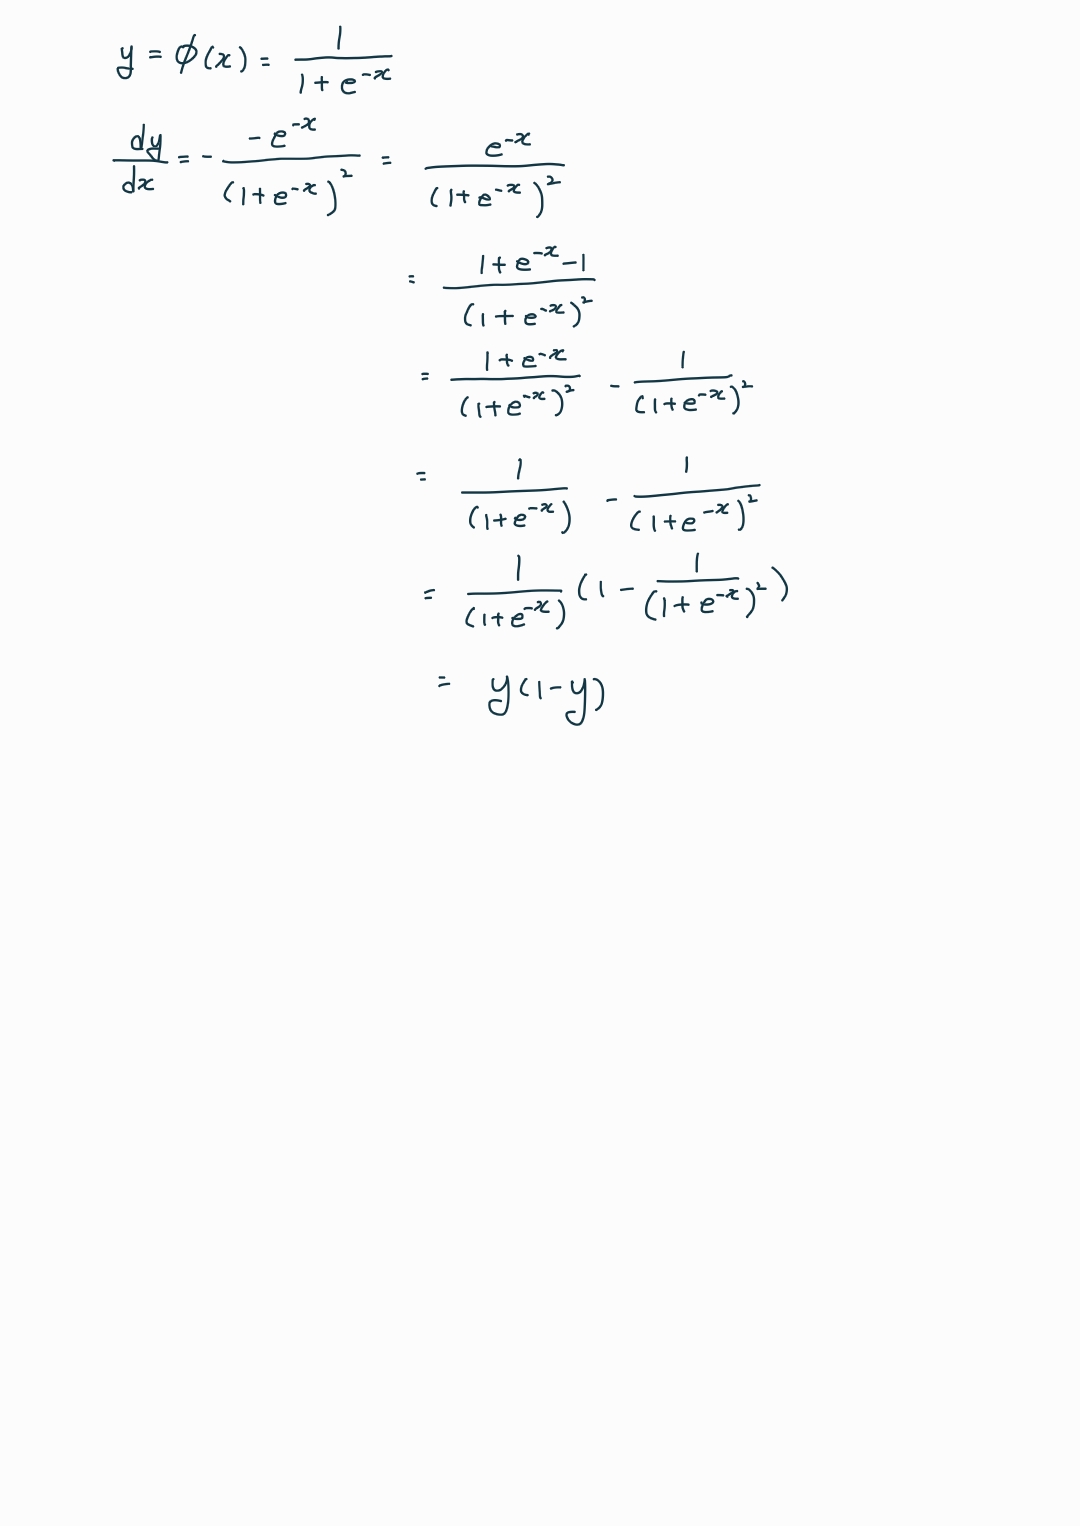 y = φ(x) = 1/(1 + e^{-x})
dy/dx = - (-e^{-x})/(1+e^{-x})^2 = e^{-x}/(1+e^{-x})^2
= (1+e^{-x}-1)/(1+e^{-x})^2
= (1+e^{-x})/(1+e^{-x})^2 - 1/(1+e^{-x})^2
= 1/(1+e^{-x}) - 1/(1+e^{-x})^2
= 1/(1+e^{-x}) (1 - 1/(1+e^{-x})^2)
= y(1-y)